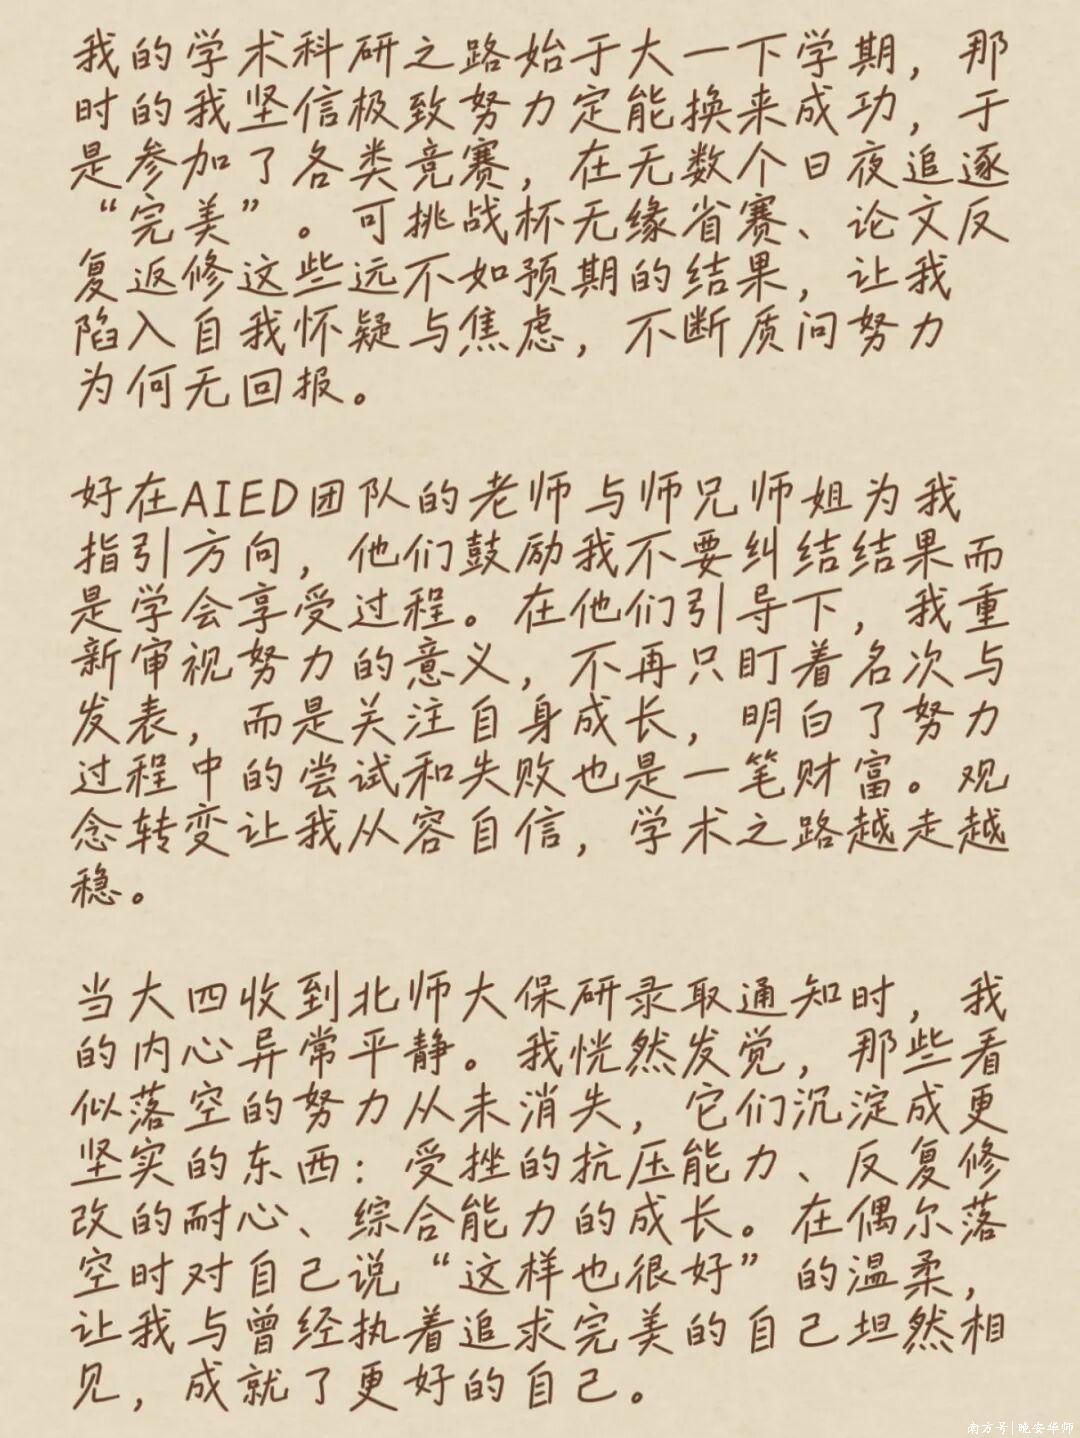 我的学术科研之路始于大一下学期，那
时的我坚信极致努力定能换来成功，于
是参加了各类竞赛，在无数个日夜追逐
“完美”。可挑战杯无缘省赛、论文反
复返修这些远不如预期的结果，让我
陷入自我怀疑与焦虑，不断质问努力
为何无回报。
好在AIED团队的老师与师兄师姐为我
指引方向，他们鼓励我不要纠结结果而
是学会享受过程。在他们引导下，我重
新审视努力的意义，不再只盯着名次与
发表，而是关注自身成长，明白了努力
过程中的尝试和失败也是一笔财富。观
念转变让我从容自信，学术之路越走越
稳。
当大四收到北师大保研录取通知时，我
的内心异常平静。我恍然发觉，那些看
似落空的努力从未消失，它们沉淀成更
坚实的东西：受挫的抗压能力、反复修
改的耐心、综合能力的成长。在偶尔落
空时对自己说“这样也很好”的温柔，
让我与曾经执着追求完美的自己坦然相
见，成就了更好的自己。
南方号|晚安华师